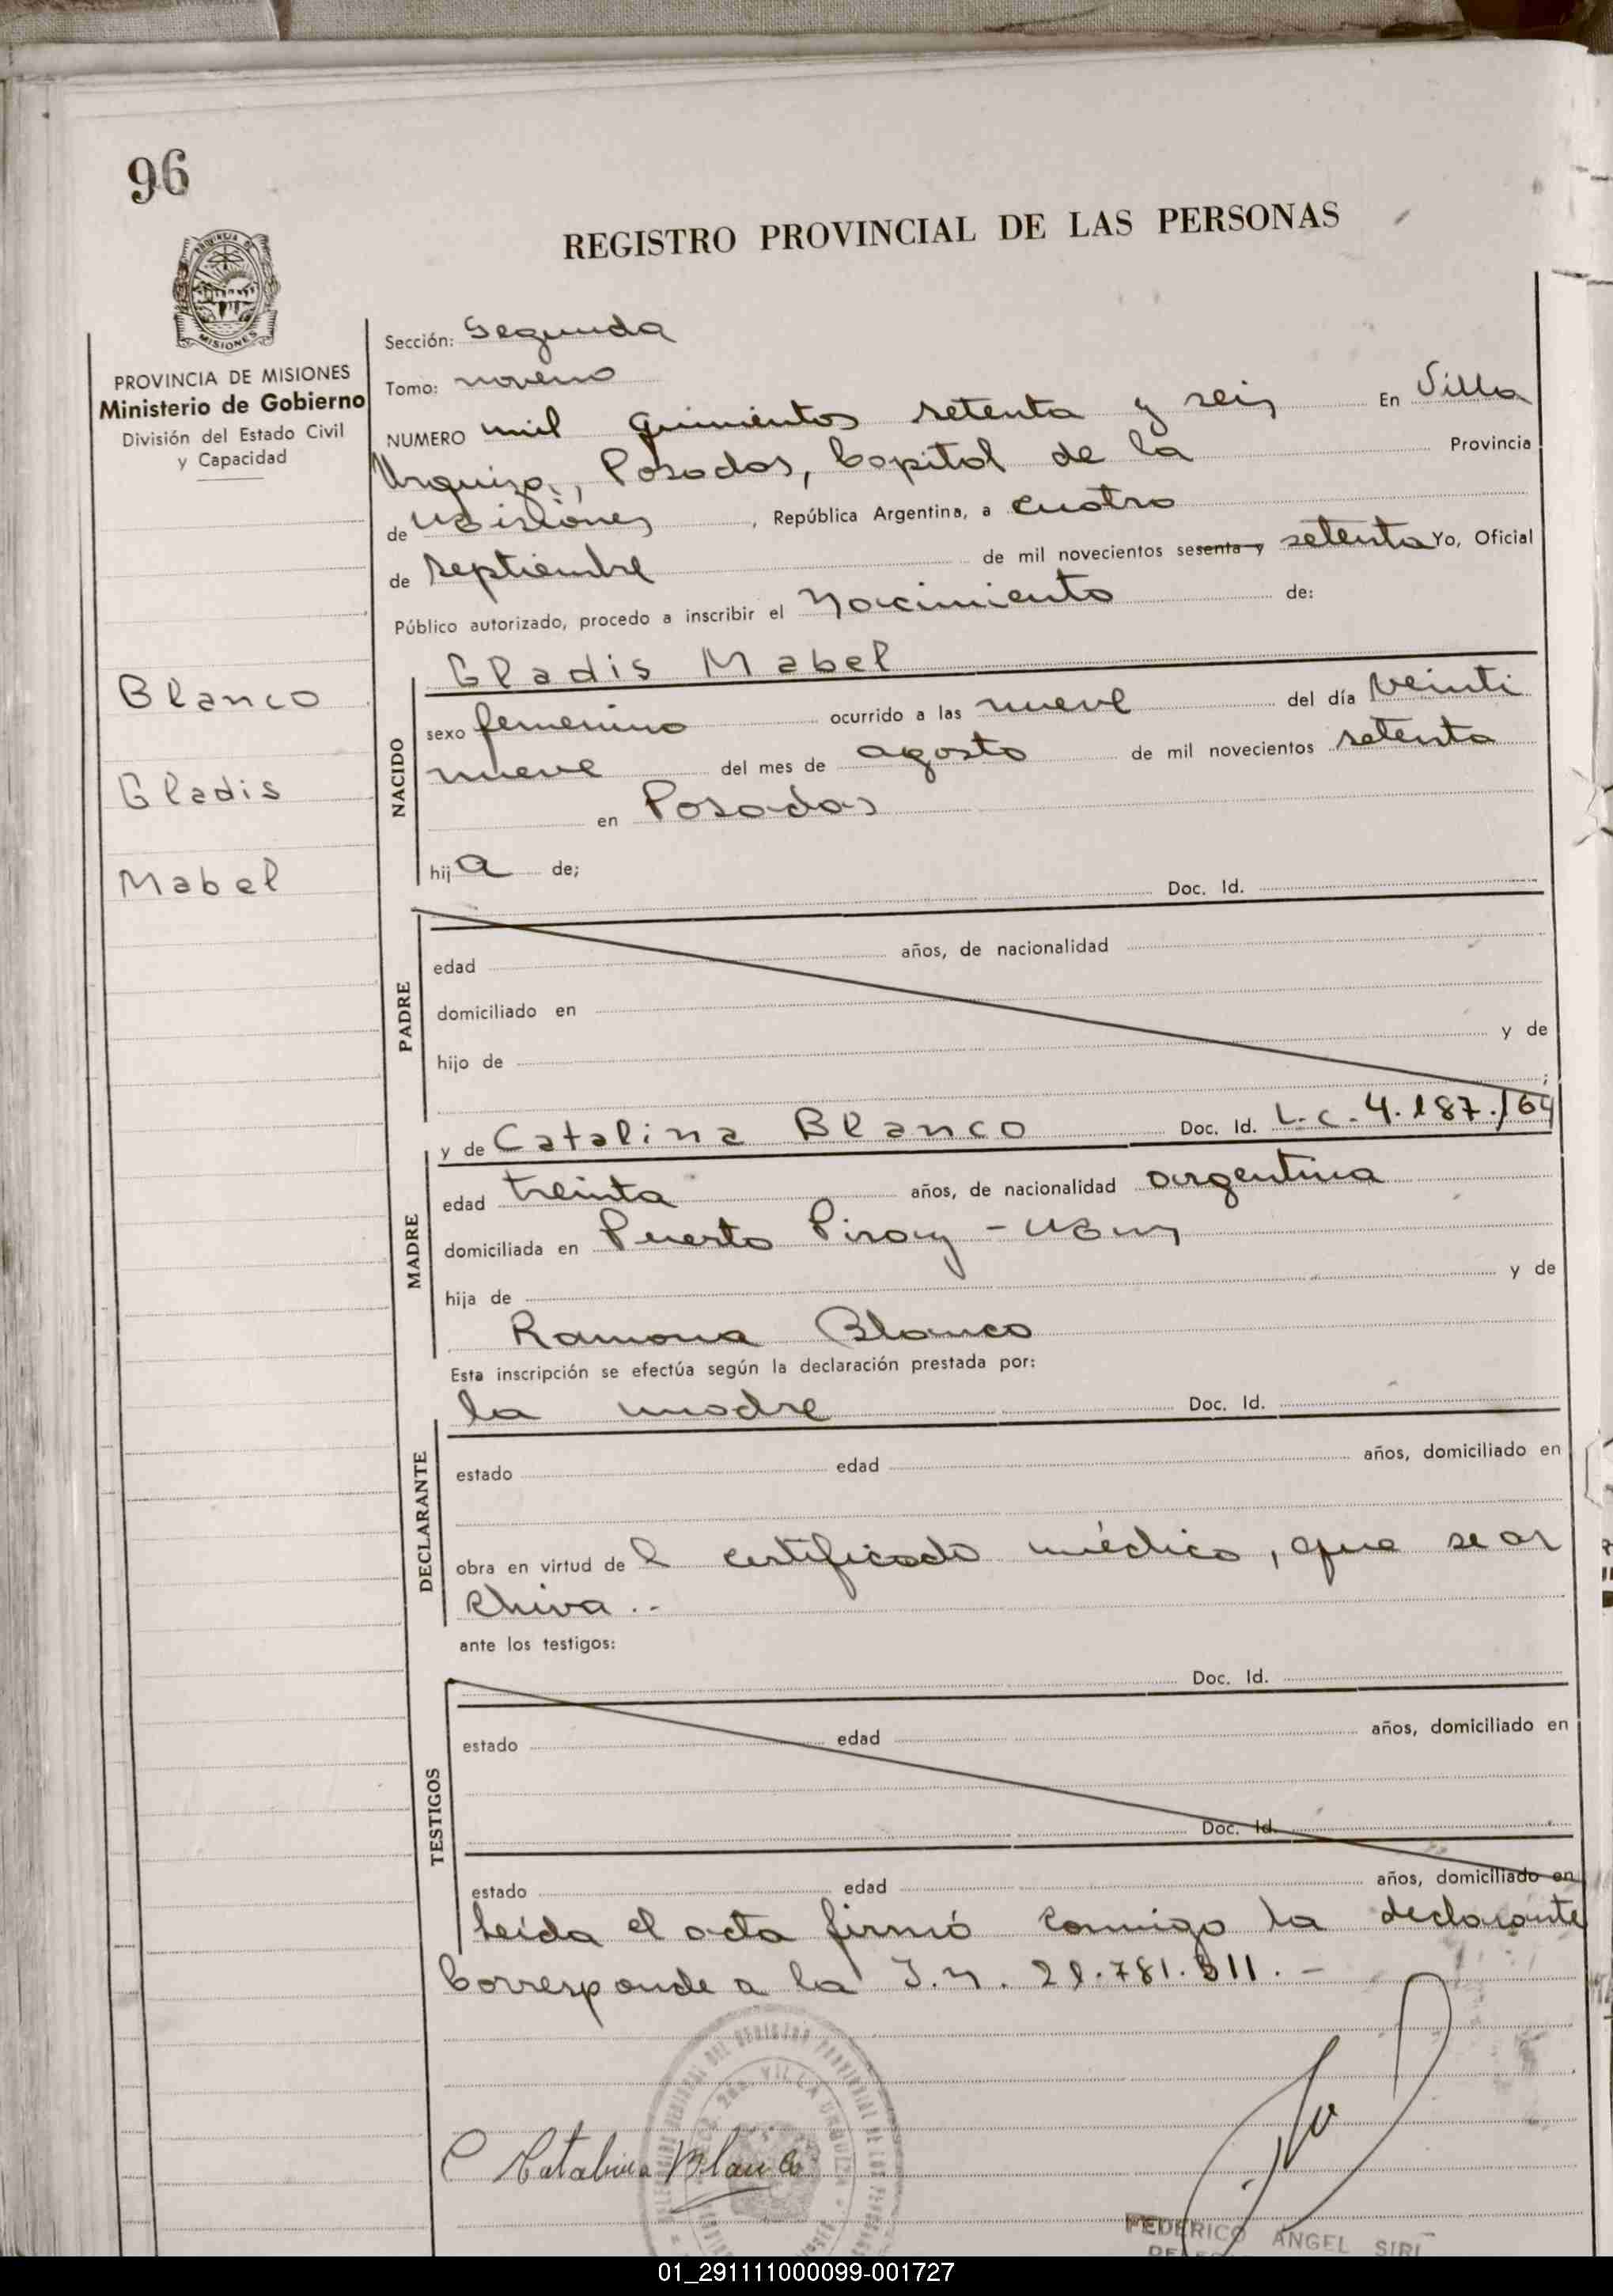 96
REGISTRO PROVINCIAL DE LAS PERSONAS
MISIONES
PROVINCIA DE MISIONES
Ministerio de Gobierno
División del Estado Civil
y Capacidad
Blanco
Gladis
Mabel
Sección: Segunda
Tomo: noveno
NUMERO mil quinientos setenta y seis En Villa
Urquiza, Posadas, Capital de la Provincia
de Misiones, República Argentina, a cuatro
de septiembre de mil novecientos sesenta y setenta Yo, Oficial
Público autorizado, procedo a inscribir el Nacimiento de:
NACIDO
Gladis Mabel
sexo femenino ocurrido a las nueve del día veinti
nueve del mes de agosto de mil novecientos setenta
en Posadas
hija de;
PADRE
Doc. Id.
edad años, de nacionalidad
domiciliado en
hijo de y de
;
MADRE
y de Catalina Blanco Doc. Id. L.C. 4.187.164
edad treinta años, de nacionalidad argentina
domiciliada en Puerto Piray -
hija de y de
Ramona Blanco
Esta inscripción se efectúa según la declaración prestada por:
DECLARANTE
la madre Doc. Id.
estado edad años, domiciliado en
obra en virtud del certificado médico, que se ar
chiva.-
ante los testigos:
TESTIGOS
Doc. Id.
estado edad años, domiciliado en
Doc. Id.
estado edad años, domiciliado en
Leída el acta firmó conmigo la declarante
Corresponde a la 21.781.311.-
Catalina Blanco
VILLA URQUIZA
FEDERICO ANGEL SIRI
01_291111000099-001727